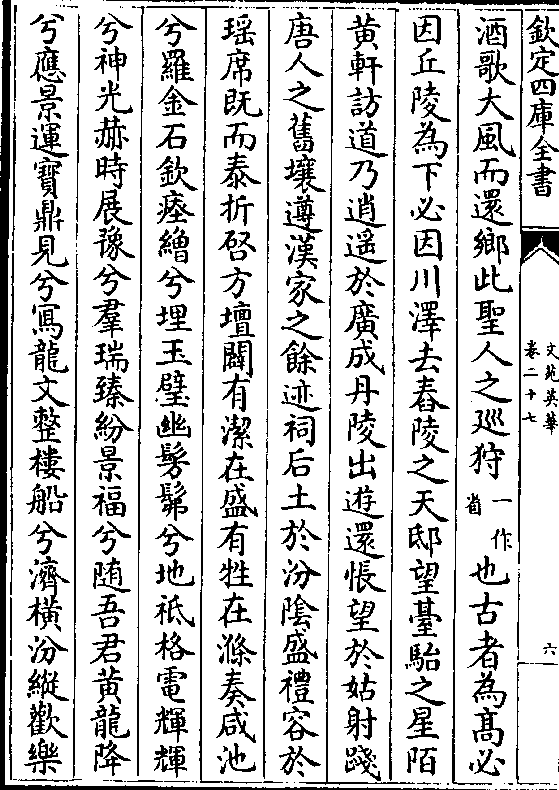 欽定四庫全書
文苑英華
卷二十七
六
酒歌大風而還鄉此聖人之廵狩一作省也古者為髙必
因丘陵為下必因川澤去舂陵之天邸望臺駘之星陌
黄軒訪道乃逍遥於廣成丹陵出遊還悵望於姑射踐
唐人之舊壤遵漢家之餘迹祠后土於汾隂盛禮容於
瑶席既而泰折啓方壇闢有潔在盛有牲在滌奏咸池
兮羅金石欽瘗繒兮埋玉璧幽髣髴兮地祇格電輝輝
兮神光赫時展豫兮羣瑞臻紛景福兮随吾君黄龍降
兮應景運寳鼎見兮冩龍文整樓船兮濟横汾縱歡樂